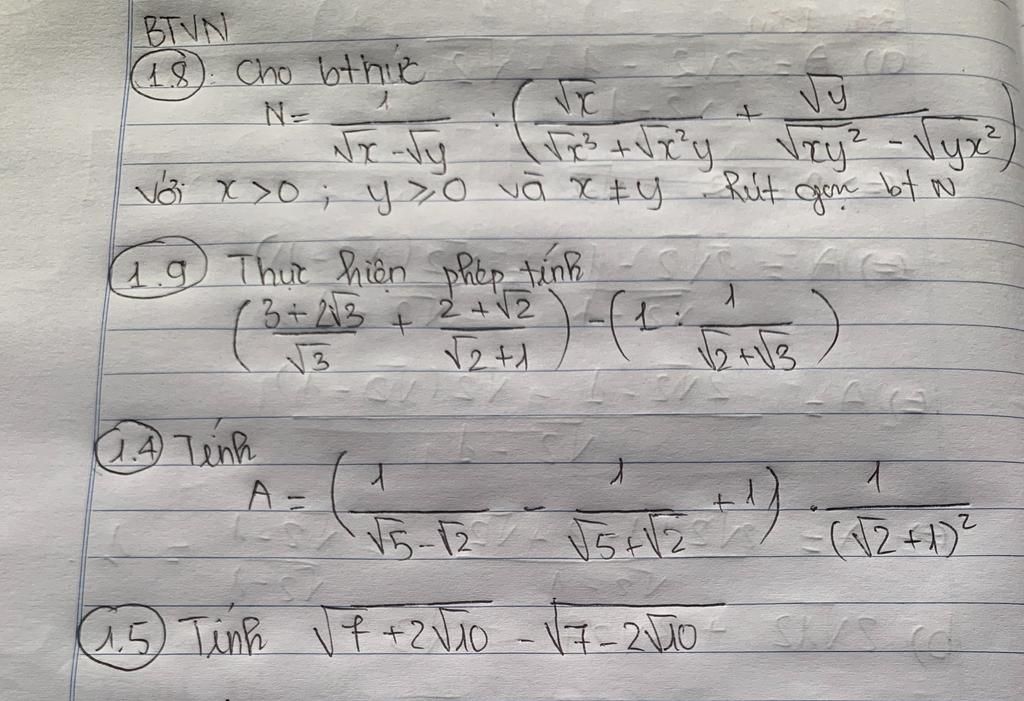 BTVN
1.8. Cho bthức
N = \frac{1}{\sqrt{x} - \sqrt{y}} : \left( \frac{\sqrt{x}}{\sqrt{x^3} + \sqrt{x^2}y} + \frac{\sqrt{y}}{\sqrt{xy^2} - \sqrt{yx^2}} \right)
với x > 0 ; y ≥ 0 và x ≠ y. Rút gọn bt N
1.9 Thực hiện phép tính
\left( \frac{3 + 2\sqrt{3}}{\sqrt{3}} + \frac{2 + \sqrt{2}}{\sqrt{2} + 1} \right) - \left( 1 : \frac{1}{\sqrt{2} + \sqrt{3}} \right)
1.4 Tính
A = \left( \frac{1}{\sqrt{5} - \sqrt{2}} - \frac{1}{\sqrt{5} + \sqrt{2}} + 1 \right) . \frac{1}{(\sqrt{2} + 1)^2}
1.5 Tính \sqrt{7 + 2\sqrt{10}} - \sqrt{7 - 2\sqrt{10}}